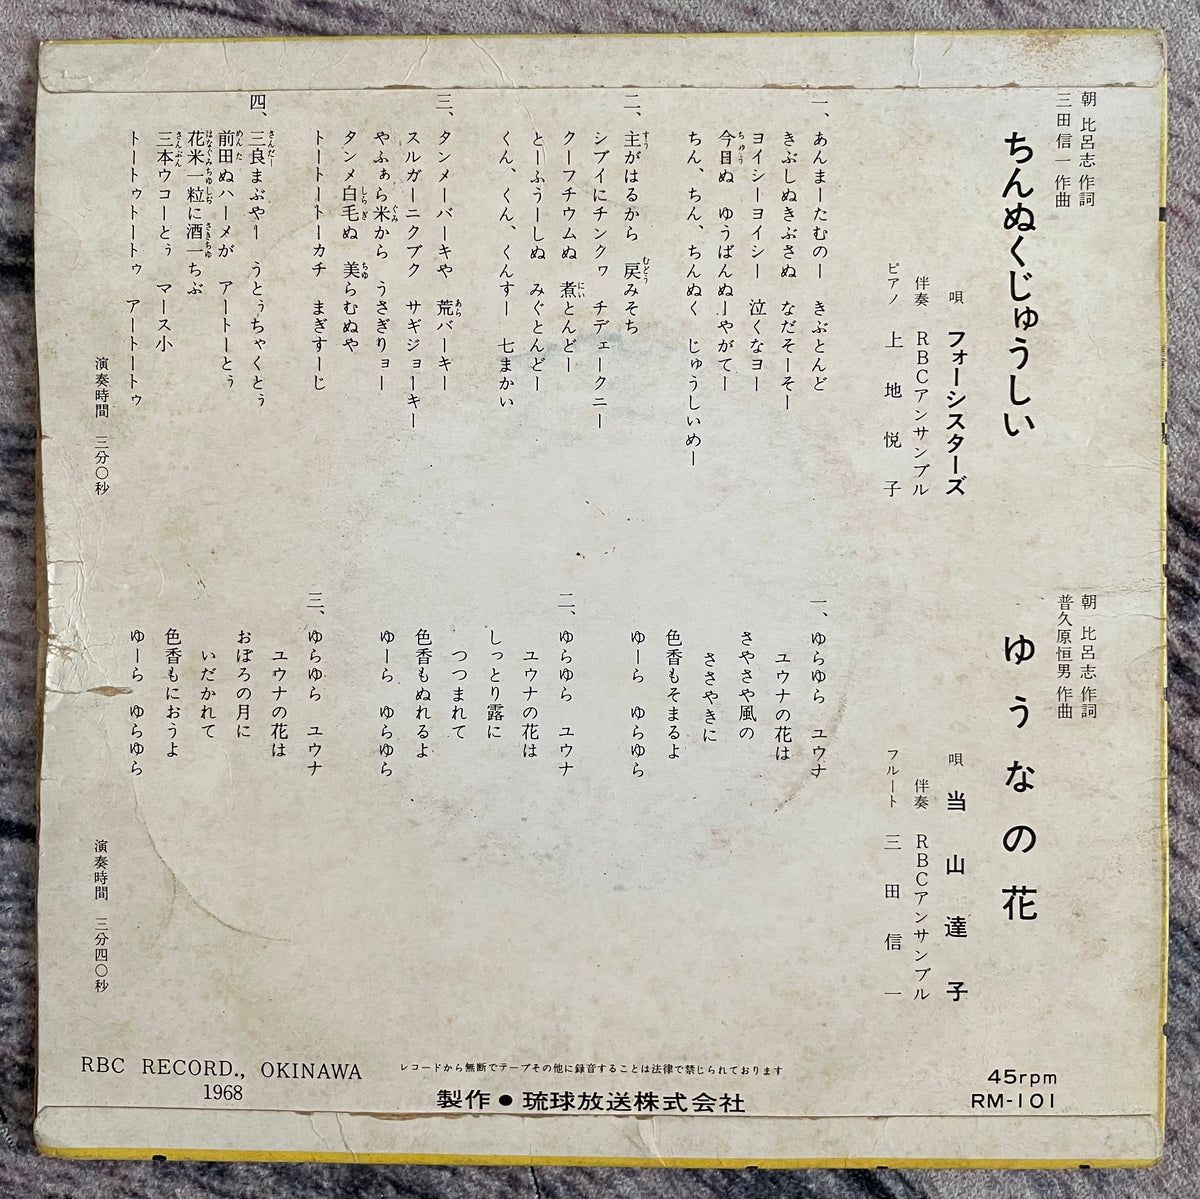 朝 比呂志 作詞
三田信一 作曲
ちんぬくじゅうしい
唄 フォーシスターズ
伴奏 RBCアンサンブル
ピアノ 上地悦子
一、あんまーたむのー きぶとんど
きぶしぬきぶさぬ なだそーそー
ヨイシーヨイシー 泣くなヨー
今日ぬ ゆうばんぬーやがてー
ちん、ちん、ちんぬく じゅうしいめー
二、主がはるから 戻みそち
シブイにチンクヮ チデェークニー
クーフチウムぬ 煮とんどー
とーふうーしぬ みぐとんどー
くん、くん、くんすー 七まかい
三、タンメーバーキや 荒バーキー
スルガーニクブク サギジョーキー
やふぁら米から うさぎりョー
タンメ白毛ぬ 美らむぬや
トートートーカチ まぎすーじ
四、三良まぶやー うとぅちゃくとぅ
前田ぬハーメが アートーとぅ
花米一粒に酒一ちぶ
三本ウコーとぅ マース小
トートゥトートゥ アートートゥ
演奏時間 三分〇秒
朝 比呂志 作詞
普久原恒男 作曲
ゆうなの花
唄 当山達子
伴奏 RBCアンサンブル
フルート 三田信一
一、ゆらゆら ユウナ
ユウナの花は
さやさや風の
ささやきに
色香もそまるよ
ゆーら ゆらゆら
二、ゆらゆら ユウナ
ユウナの花は
しっとり露に
つつまれて
色香もぬれるよ
ゆーら ゆらゆら
三、ゆらゆら ユウナ
ユウナの花は
おぼろの月に
いだかれて
色香もにおうよ
ゆーら ゆらゆら
演奏時間 三分四〇秒
RBC RECORD., OKINAWA
1968
レコードから無断でテープその他に録音することは法律で禁じられております
製作●琉球放送株式会社
45rpm
RM-101